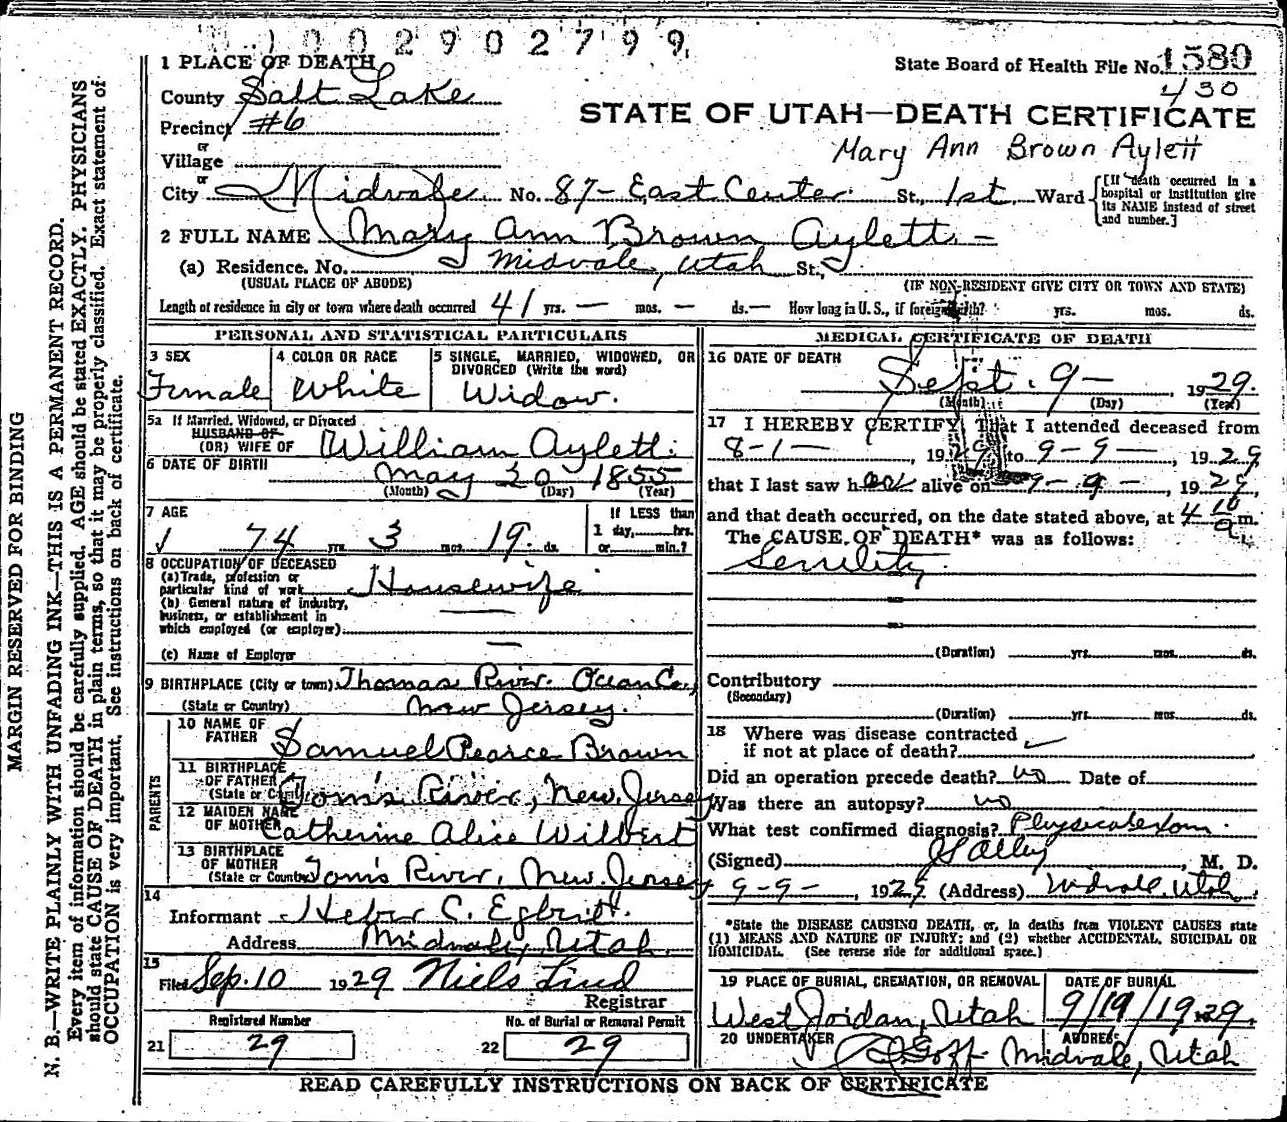 1002902799
1 PLACE OF DEATH
State Board of Health File No. 1580
County Salt Lake
430
STATE OF UTAH—DEATH CERTIFICATE
Precinct #6
or
Village
Mary Ann Brown Aylett
or
City Midvale No. 87 - East Center St., 1st Ward {[If death occurred in a hospital or institution give its NAME instead of street and number.]
2 FULL NAME Mary Ann Brown Aylett -
(a) Residence. No. Midvale, Utah St.,
(USUAL PLACE OF ABODE) (IF NON-RESIDENT GIVE CITY OR TOWN AND STATE)
Length of residence in city or town where death occurred 41 yrs. — mos. — ds. — How long in U. S., if foreign birth? yrs. mos. ds.
PERSONAL AND STATISTICAL PARTICULARS
3 SEX
Female
4 COLOR OR RACE
White
5 SINGLE, MARRIED, WIDOWED, OR
DIVORCED (Write the word)
Widow.
5a If Married, Widowed, or Divorced
HUSBAND OF
(OR) WIFE OF William Aylett.
6 DATE OF BIRTH
May 20 1855
(Month) (Day) (Year)
7 AGE
74 yrs. 3 mos. 19. ds.
If LESS than
1 day, hrs.
or min.?
8 OCCUPATION OF DECEASED
(a) Trade, profession or
particular kind of work Housewife
(b) General nature of industry,
business, or establishment in
which employed (or employer)
(c) Name of Employer
9 BIRTHPLACE (City or town) Thomas River. Ocean Co.,
(State or Country) New Jersey.
PARENTS
10 NAME OF
FATHER Samuel Pearce Brown
11 BIRTHPLACE
OF FATHER
(State or Country) Tom's River, New Jersey
12 MAIDEN NAME
OF MOTHER Catherine Alice Wilbert
13 BIRTHPLACE
OF MOTHER
(State or Country) Tom's River, New Jersey
14
Informant Heber C. Egbert.
Address Midvale, Utah.
15
Filed Sep. 10 1929 Niels Lind
Registrar
Registered Number
21 29
No. of Burial or Removal Permit
22 29
MEDICAL CERTIFICATE OF DEATH
16 DATE OF DEATH
Sept. 9 - 1929.
(Month) (Day) (Year)
17 I HEREBY CERTIFY, That I attended deceased from
8-1-, 1929 to 9-9-, 1929
that I last saw her alive on 9-9-, 1929,
and that death occurred, on the date stated above, at 4 10 a. m.
The CAUSE OF DEATH* was as follows:
Senility
(Duration) yrs. mos. ds.
Contributory
(Secondary)
(Duration) yrs. mos. ds.
18 Where was disease contracted
if not at place of death?
Did an operation precede death? no Date of
Was there an autopsy? no
What test confirmed diagnosis? Physical exam.
(Signed) , M. D.
9-9-, 1929 (Address) Midvale, Utah.
*State the DISEASE CAUSING DEATH, or, in deaths from VIOLENT CAUSES state
(1) MEANS AND NATURE OF INJURY; and (2) whether ACCIDENTAL, SUICIDAL OR
HOMICIDAL. (See reverse side for additional space.)
19 PLACE OF BURIAL, CREMATION, OR REMOVAL
West Jordan, Utah
DATE OF BURIAL
9/19/1929.
20 UNDERTAKER
Goff
ADDRESS
Midvale, Utah
READ CAREFULLY INSTRUCTIONS ON BACK OF CERTIFICATE
MARGIN RESERVED FOR BINDING
N. B.—WRITE PLAINLY WITH UNFADING INK—THIS IS A PERMANENT RECORD.
Every item of information should be carefully supplied. AGE should be stated EXACTLY. PHYSICIANS
should state CAUSE OF DEATH in plain terms, so that it may be properly classified. Exact statement of
OCCUPATION is very important. See instructions on back of certificate.